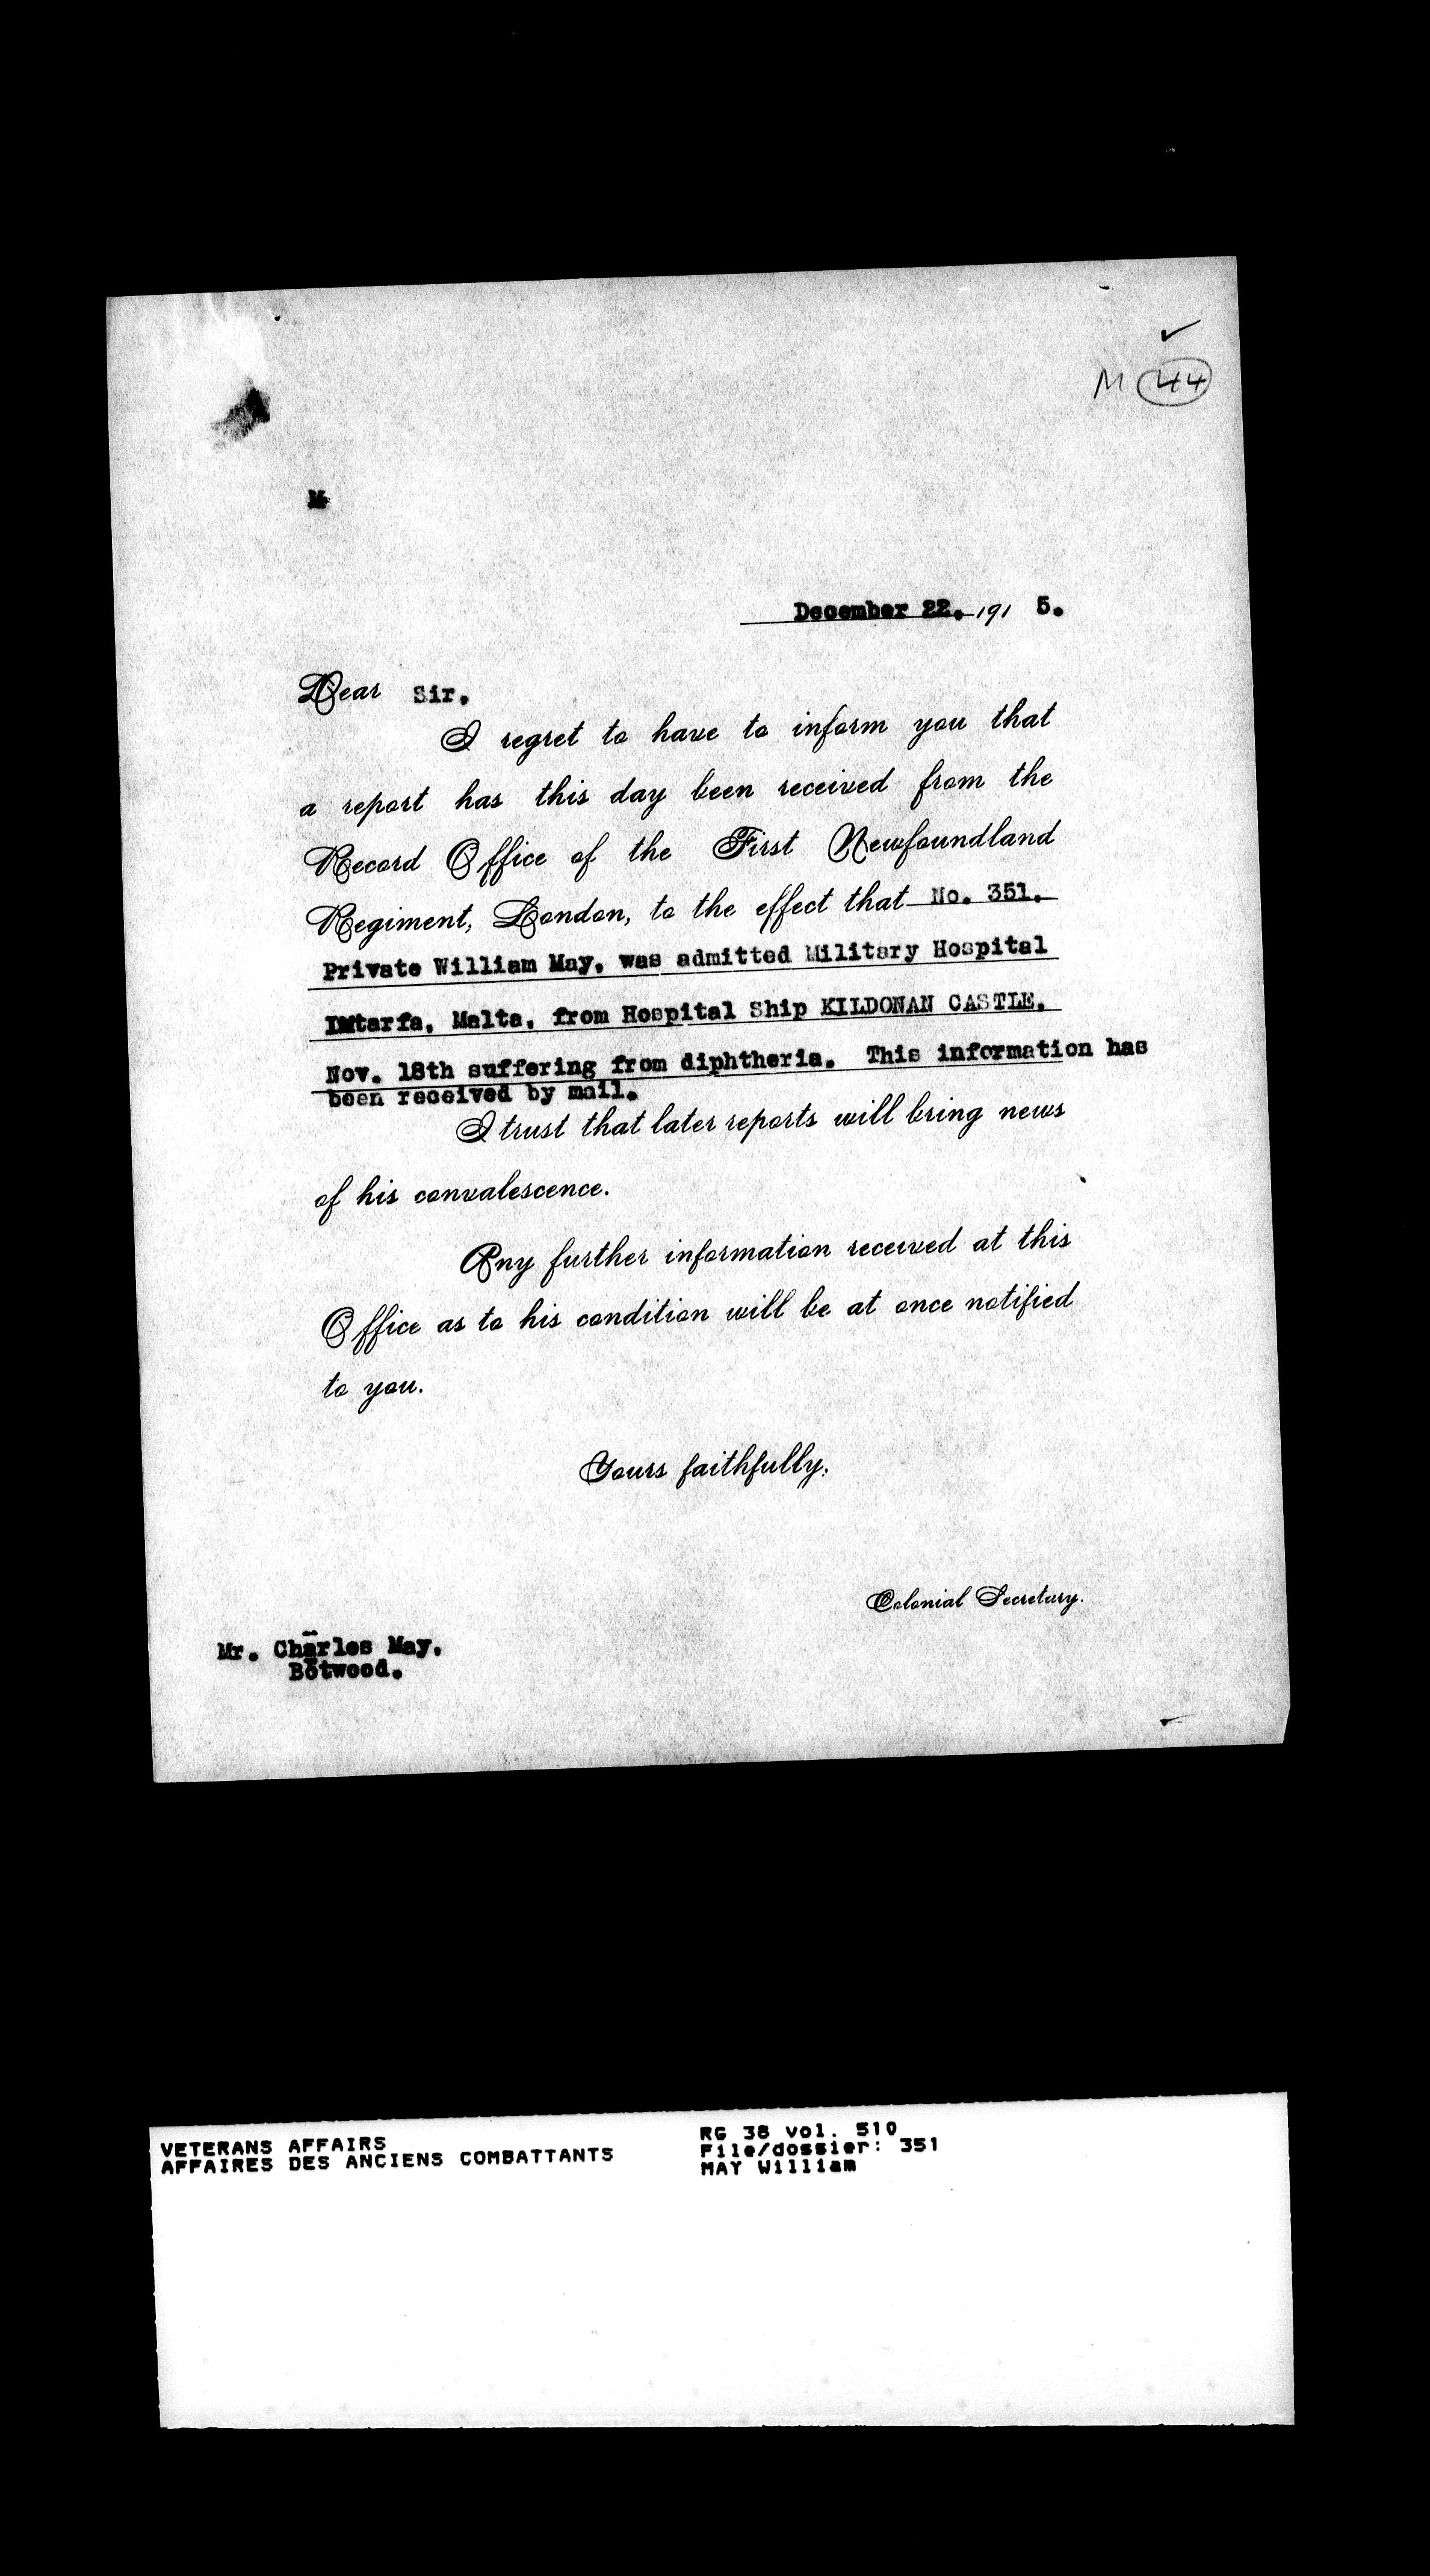 M 44
M
December 22. 191 5.
Dear Sir.
I regret to have to inform you that
a report has this day been received from the
Record Office of the First Newfoundland
Regiment, London, to the effect that No. 351.
Private William May, was admitted Military Hospital
IMtarfa, Malta, from Hospital Ship KILDONAN CASTLE.
Nov. 18th suffering from diphtheria. This information has
been received by mail.
I trust that later reports will bring news
of his convalescence.
Any further information received at this
Office as to his condition will be at once notified
to you.
Yours faithfully,
Colonial Secretary.
Mr. Charles May,
Botwood.
VETERANS AFFAIRS
AFFAIRES DES ANCIENS COMBATTANTS
RG 38 vol. 510
File/dossier: 351
MAY William